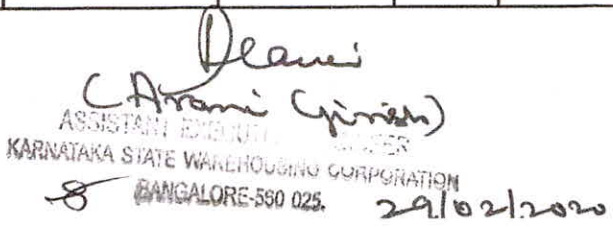 (Avani Girish)
ASSISTANT
KARNATAKA STATE WAREHOUSING CORPORATION
BANGALORE-560 025. 29/02/2020